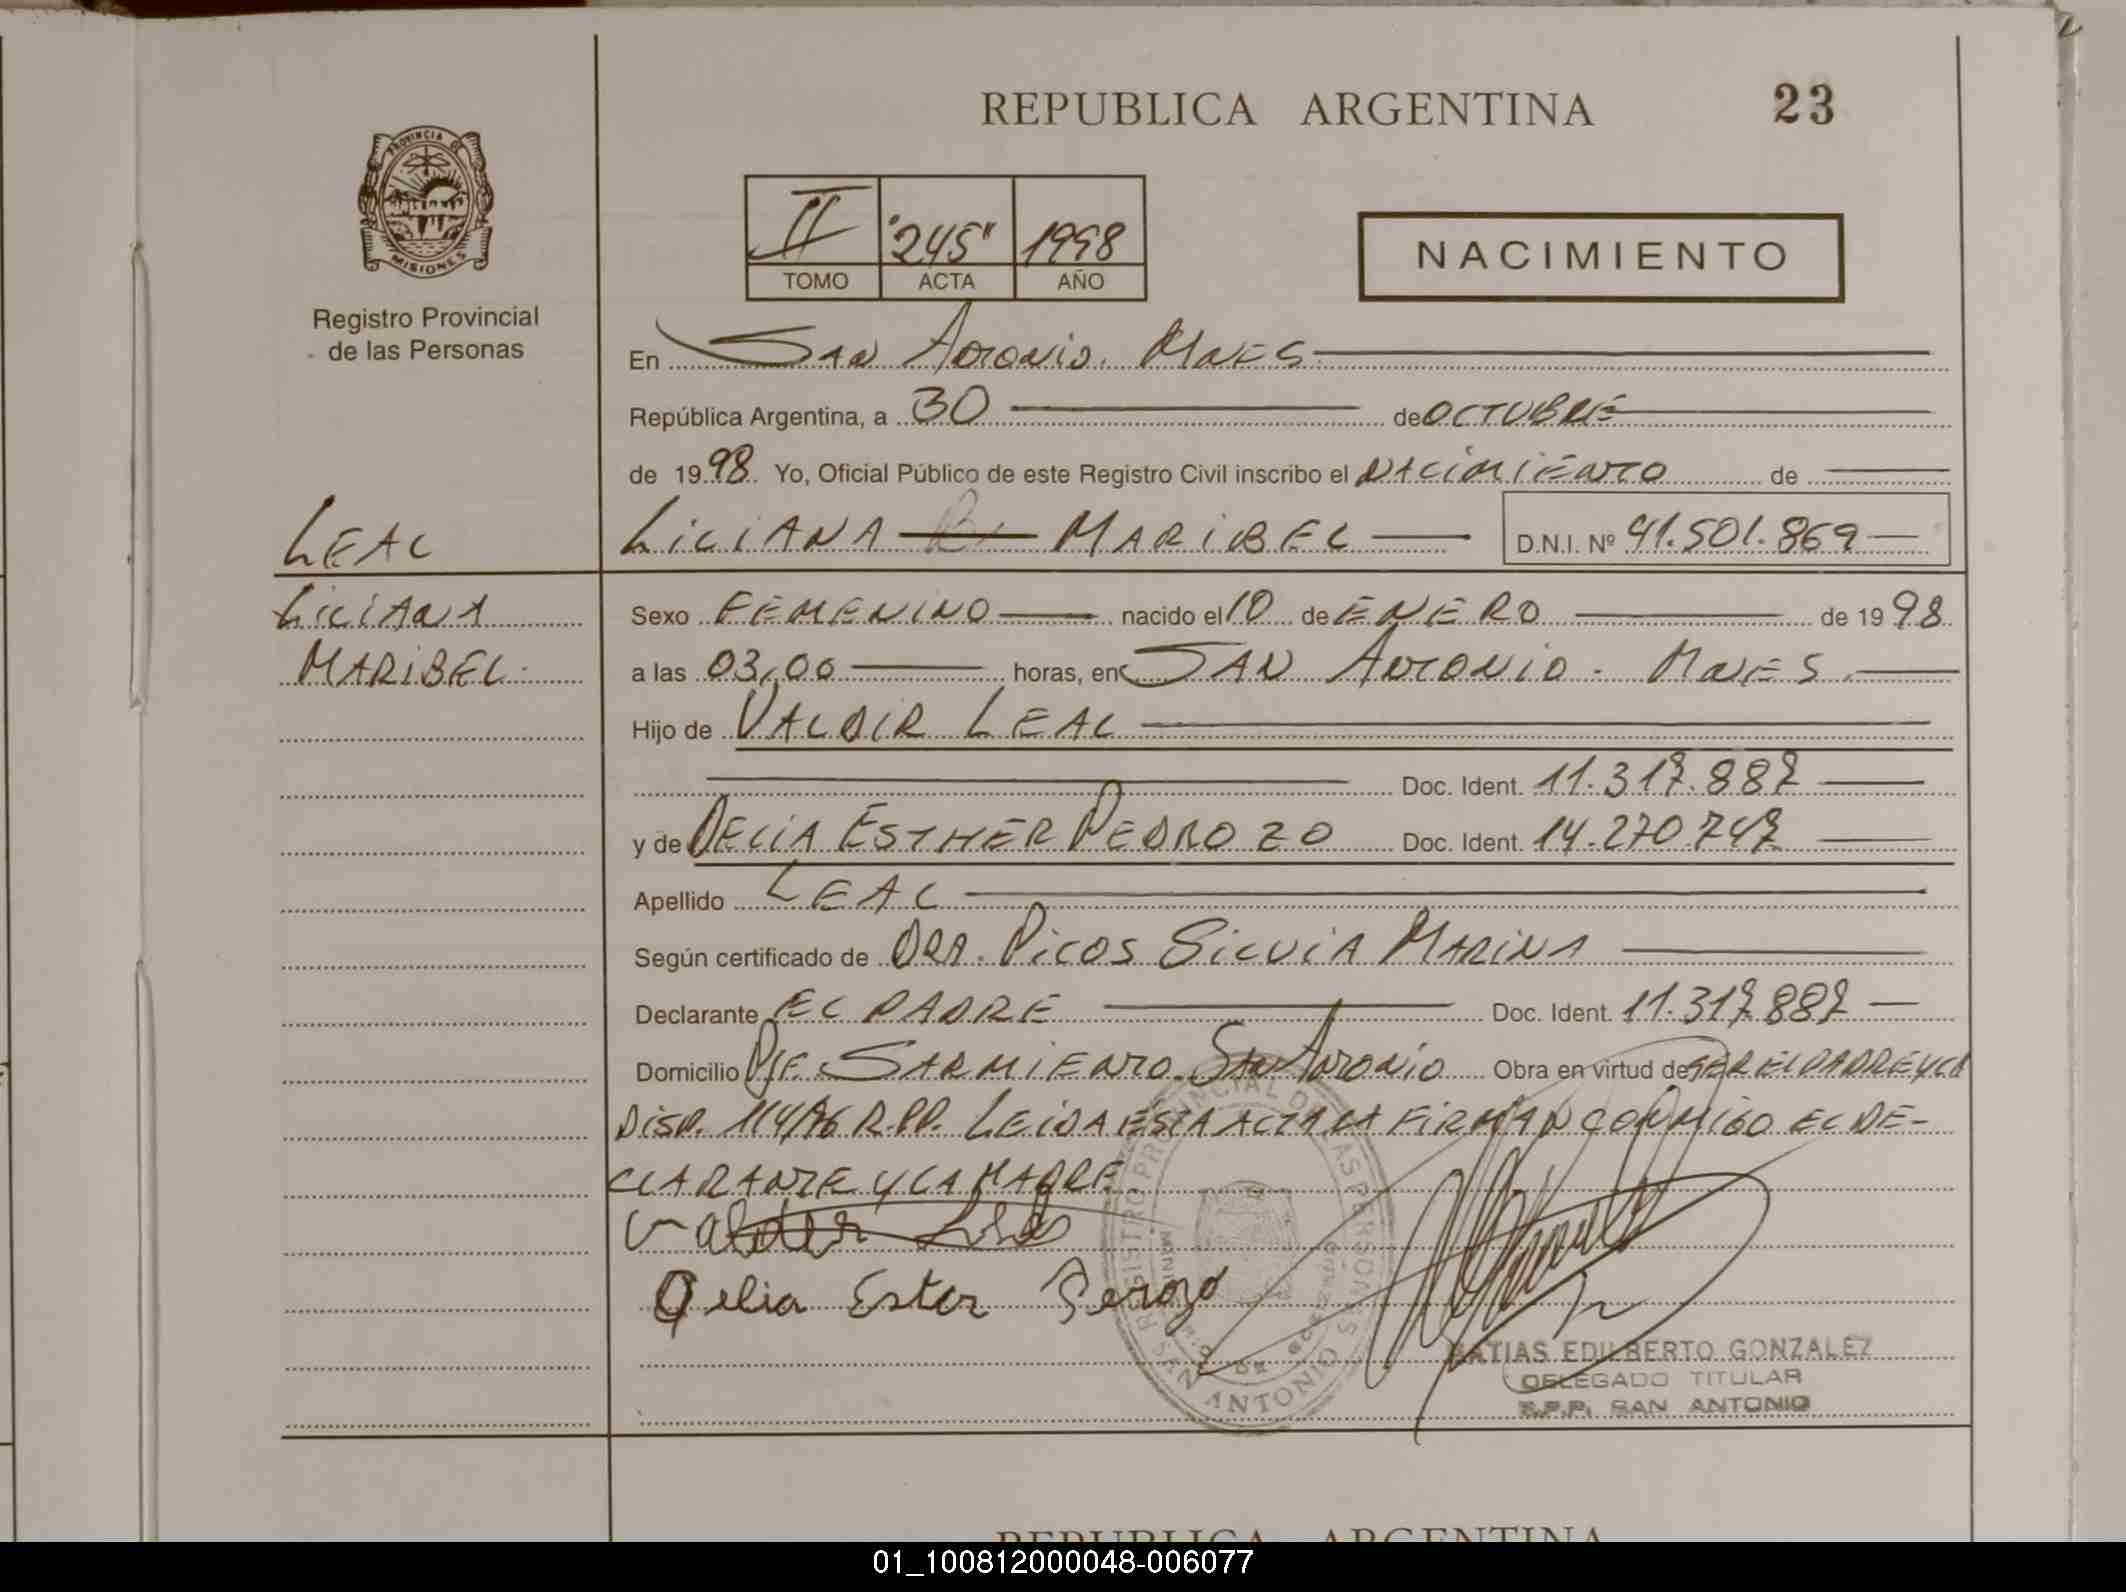 REPUBLICA ARGENTINA 23
PROVINCIA DE
MISIONES
Registro Provincial
de las Personas
II "245" 1998
TOMO ACTA AÑO
NACIMIENTO
En San Antonio. Mnes
República Argentina, a 30 de OCTUBRE
de 1998. Yo, Oficial Público de este Registro Civil inscribo el NACIMIENTO de
LEAL
LILIANA MARIBEL D.N.I. Nº 41.501.869
LILIANA
MARIBEL
Sexo FEMENINO nacido el 10 de ENERO de 1998
a las 03,00 horas, en SAN ANTONIO. MNES.
Hijo de VALDIR LEAL
Doc. Ident. 11.317.887
y de DELIA ESTHER PEDROZO Doc. Ident. 14.270.747
Apellido LEAL
Según certificado de DRA. PICOS SILVIA MARINA
Declarante EL PADRE Doc. Ident. 11.317.887
Domicilio Pje. SARMIENTO. SAN ANTONIO Obra en virtud de SER EL PADRE Y LA
DISP. 114/96 R.PP. LEIDA ESTA ACTA LA FIRMAN CONMIGO EL DE-
CLARANTE Y LA MADRE
Delia Ester Perozo
REGISTRO PROVINCIAL DE LAS PERSONAS
SAN ANTONIO
MATIAS EDILBERTO GONZALEZ
DELEGADO TITULAR
R.P.P. SAN ANTONIO
REPUBLICA ARGENTINA
01_100812000048-006077